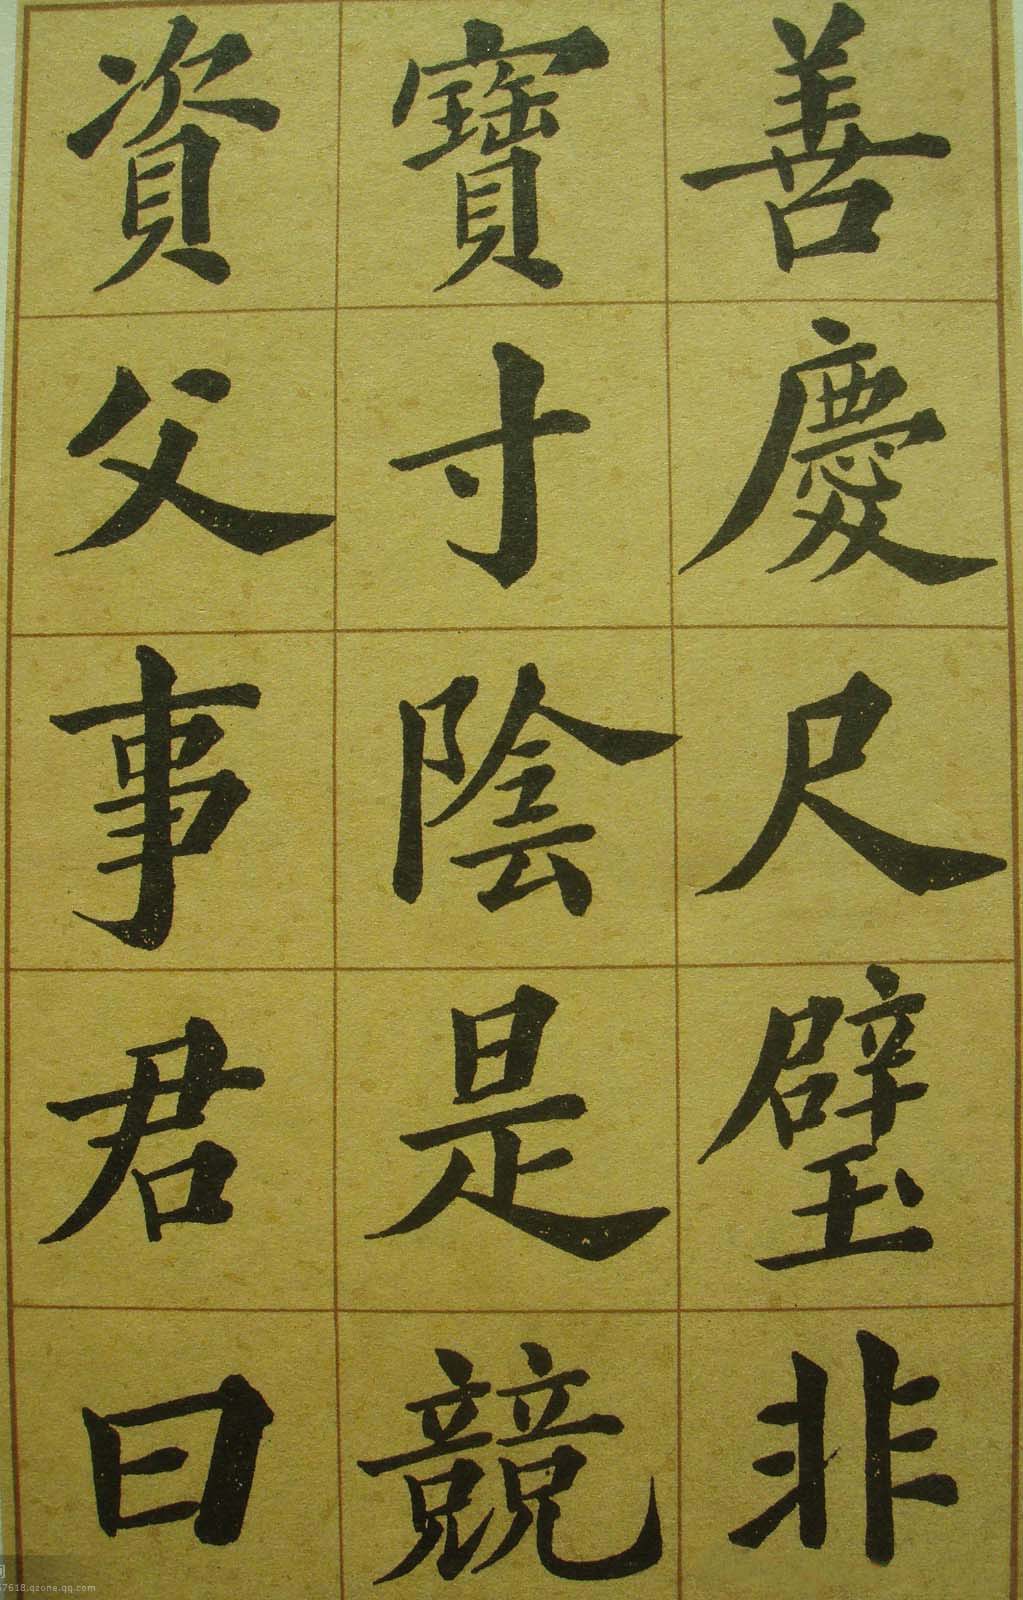 善慶尺璧非
寶寸陰是競
資父事君曰
57618.qzone.qq.com